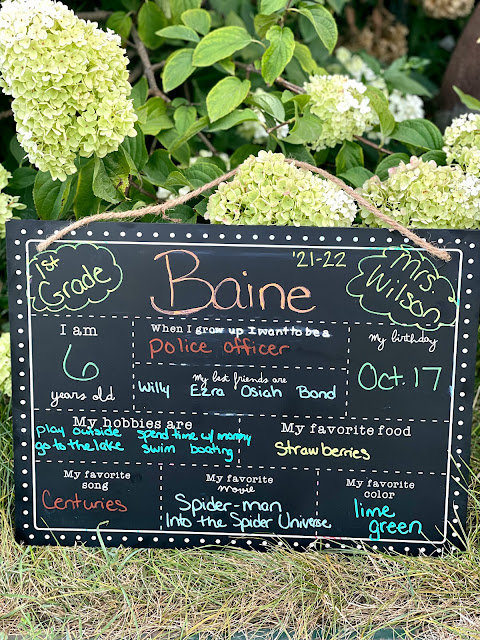 1st Grade
Baine
'21-22
Mrs. Wilson
I am
6
years old
When I grow up I want to be a
police officer
My best friends are
Willy Ezra Osiah Bond
My birthday
Oct. 17
My hobbies are
play outside spend time w/ mommy
go to the lake swim boating
My favorite food
Strawberries
My favorite song
Centuries
My favorite movie
Spider-man
Into the Spider Universe
My favorite color
lime
green